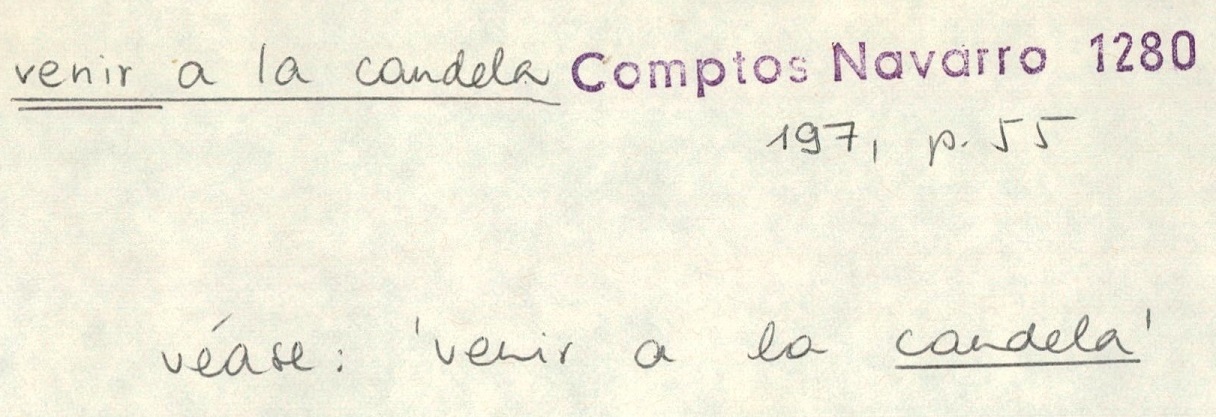 venir a la candela Comptos Navarro 1280
197, p. 55
véase: 'venir a la candela'